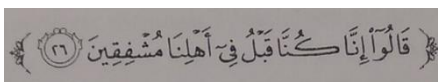 ﴿ قَالُوٓا۟ إِنَّا كُنَّا قَبْلُ فِىٓ أَهْلِنَا مُشْفِقِينَ ٢٦ ﴾